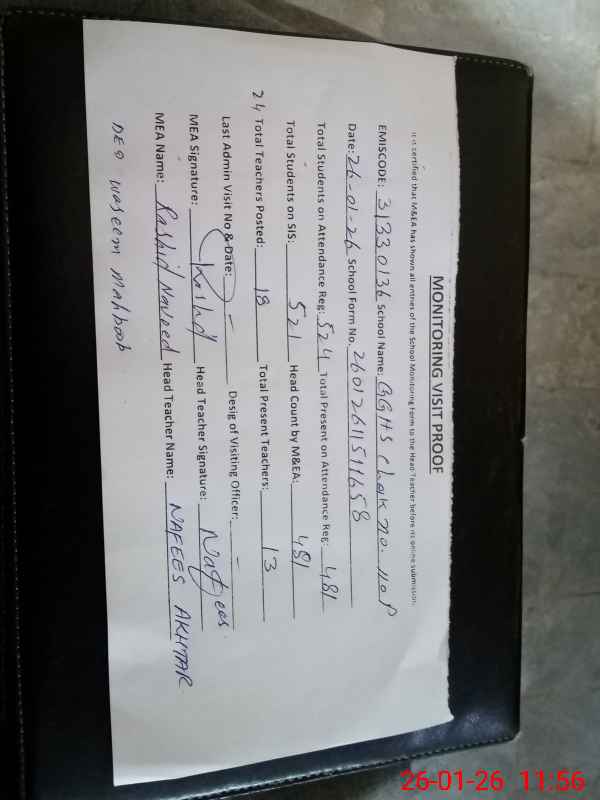 MONITORING VISIT PROOF
It is certified that M&EA has shown all entries of the School Monitoring Form to the Head Teacher before its online submission.
EMISCODE: 31330136 School Name: GGHS Chak no. 110P
Date: 26-01-26 School Form No. 26012611511658
Total Students on Attendance Reg: 524 Total Present on Attendance Reg: 481
Total Students on SIS: 521 Head Count by M&EA: 481
24 Total Teachers Posted: 18 Total Present Teachers: 13
Last Admin Visit No & Date: - Desig of Visiting Officer: -
MEA Signature: Rashid Head Teacher Signature: Nafees
MEA Name: Rashid Naveed Head Teacher Name: NAFEES AKHTAR
DEO Waseem Mahboob
26-01-26 11:56